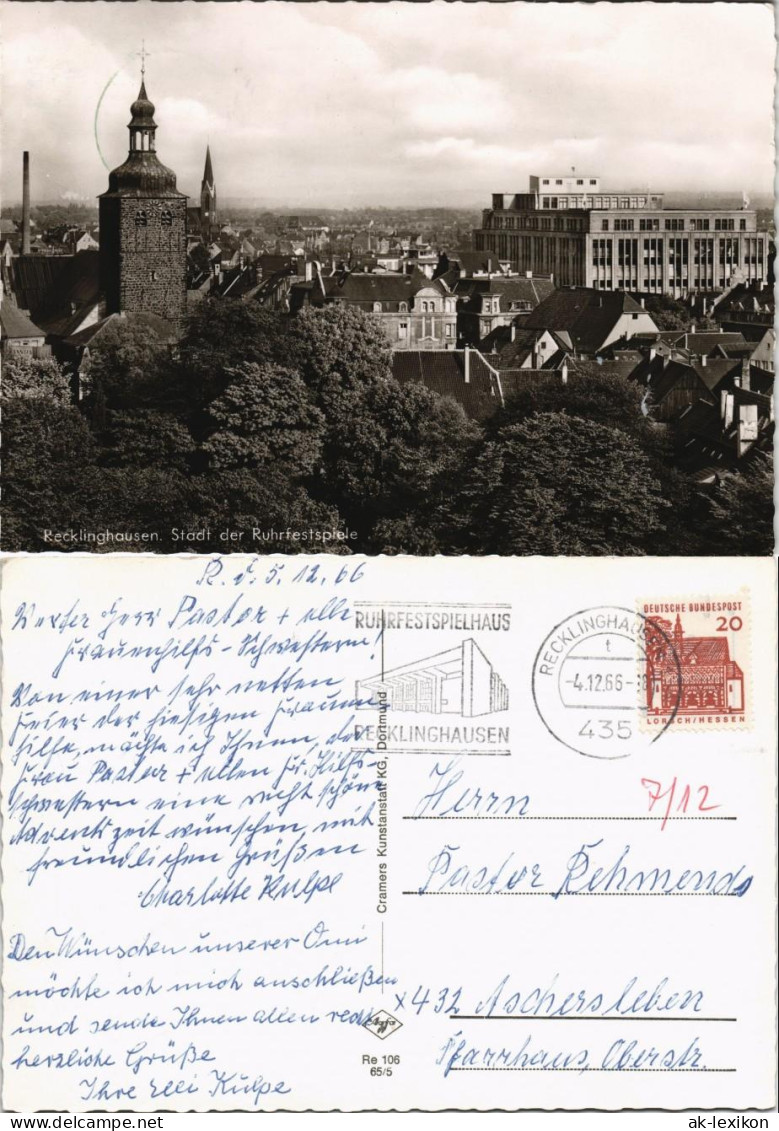 Recklinghausen. Stadt der Ruhrfestspiele
R. d. 5. 12. 66
Werter Herr Pastor + alle
Frauenhilfs-Schwestern!
Von einer sehr netten
Feier der hiesigen Frauen
hilfe, möchte ich Ihnen, der
Frau Pastor + allen Fr. Hilfs-
schwestern eine recht schöne
Adventszeit wünschen, mit
freundlichen Grüßen
Charlotte Kulpe
Den Wünschen unserer Omi
möchte ich mich anschließen
und sende Ihnen allen recht
herzliche Grüße
Ihre Elli Kulpe
RUHRFESTSPIELHAUS
RECKLINGHAUSEN
RECKLINGHAUSEN
t
-4.12.66-
435
DEUTSCHE BUNDESPOST
20
LORSCH/HESSEN
Cramers Kunstanstalt KG, Dortmund
7/12
Herrn
Pastor Rehmend
x432 Aschersleben
Pfarrhaus, Oberstr.
Agfa
Re 106
65/5
ak-lexikon